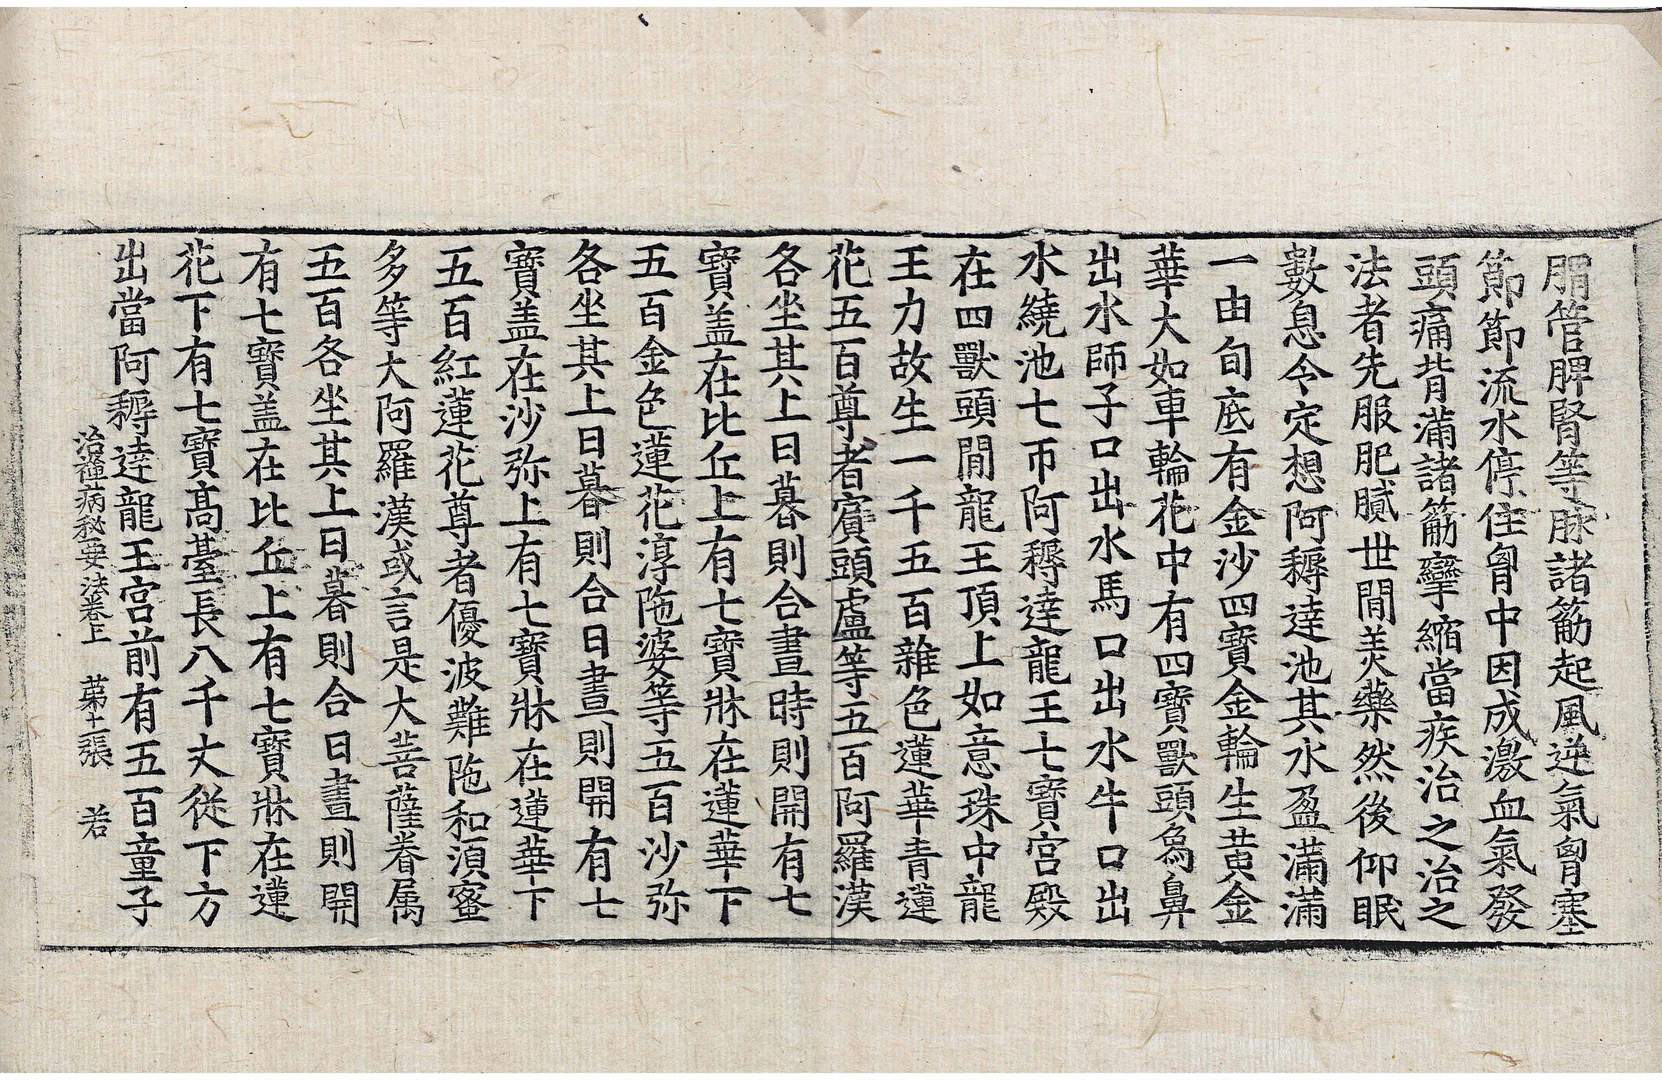 胃管脾腎等脉諸筋起風逆氣胷塞
節節流水停住胷中因成激血氣發
頭痛背滿諸筋攣縮當疾治之治之
法者先服肥膩世間美藥然後仰眠
數息令定想阿耨達池其水盈滿滿
一由旬底有金沙四寶金輪生黄金
華大如車輪花中有四寶獸頭鳥鼻
出水師子口出水馬口出水牛口出
水繞池七帀阿耨達龍王七寶宮殿
在四獸頭間龍王頂上如意珠中龍
王力故生一千五百雜色蓮華青蓮
花五百尊者賔頭盧等五百阿羅漢
各坐其上日暮則合晝時則開有七
寶盖在比丘上有七寶牀在蓮華下
五百金色蓮花淳陁婆等五百沙弥
各坐其上日暮則合日晝則開有七
寶盖在沙弥上有七寶牀在蓮華下
五百紅蓮花尊者優波難陁和湏蜜
多等大阿羅漢或言是大菩薩眷属
五百各坐其上日暮則合日晝則開
有七寶盖在比丘上有七寶牀在蓮
花下有七寶髙臺長八千丈從下方
出當阿耨達龍王宫前有五百童子
治禪病秘要法卷上　第十二張　若